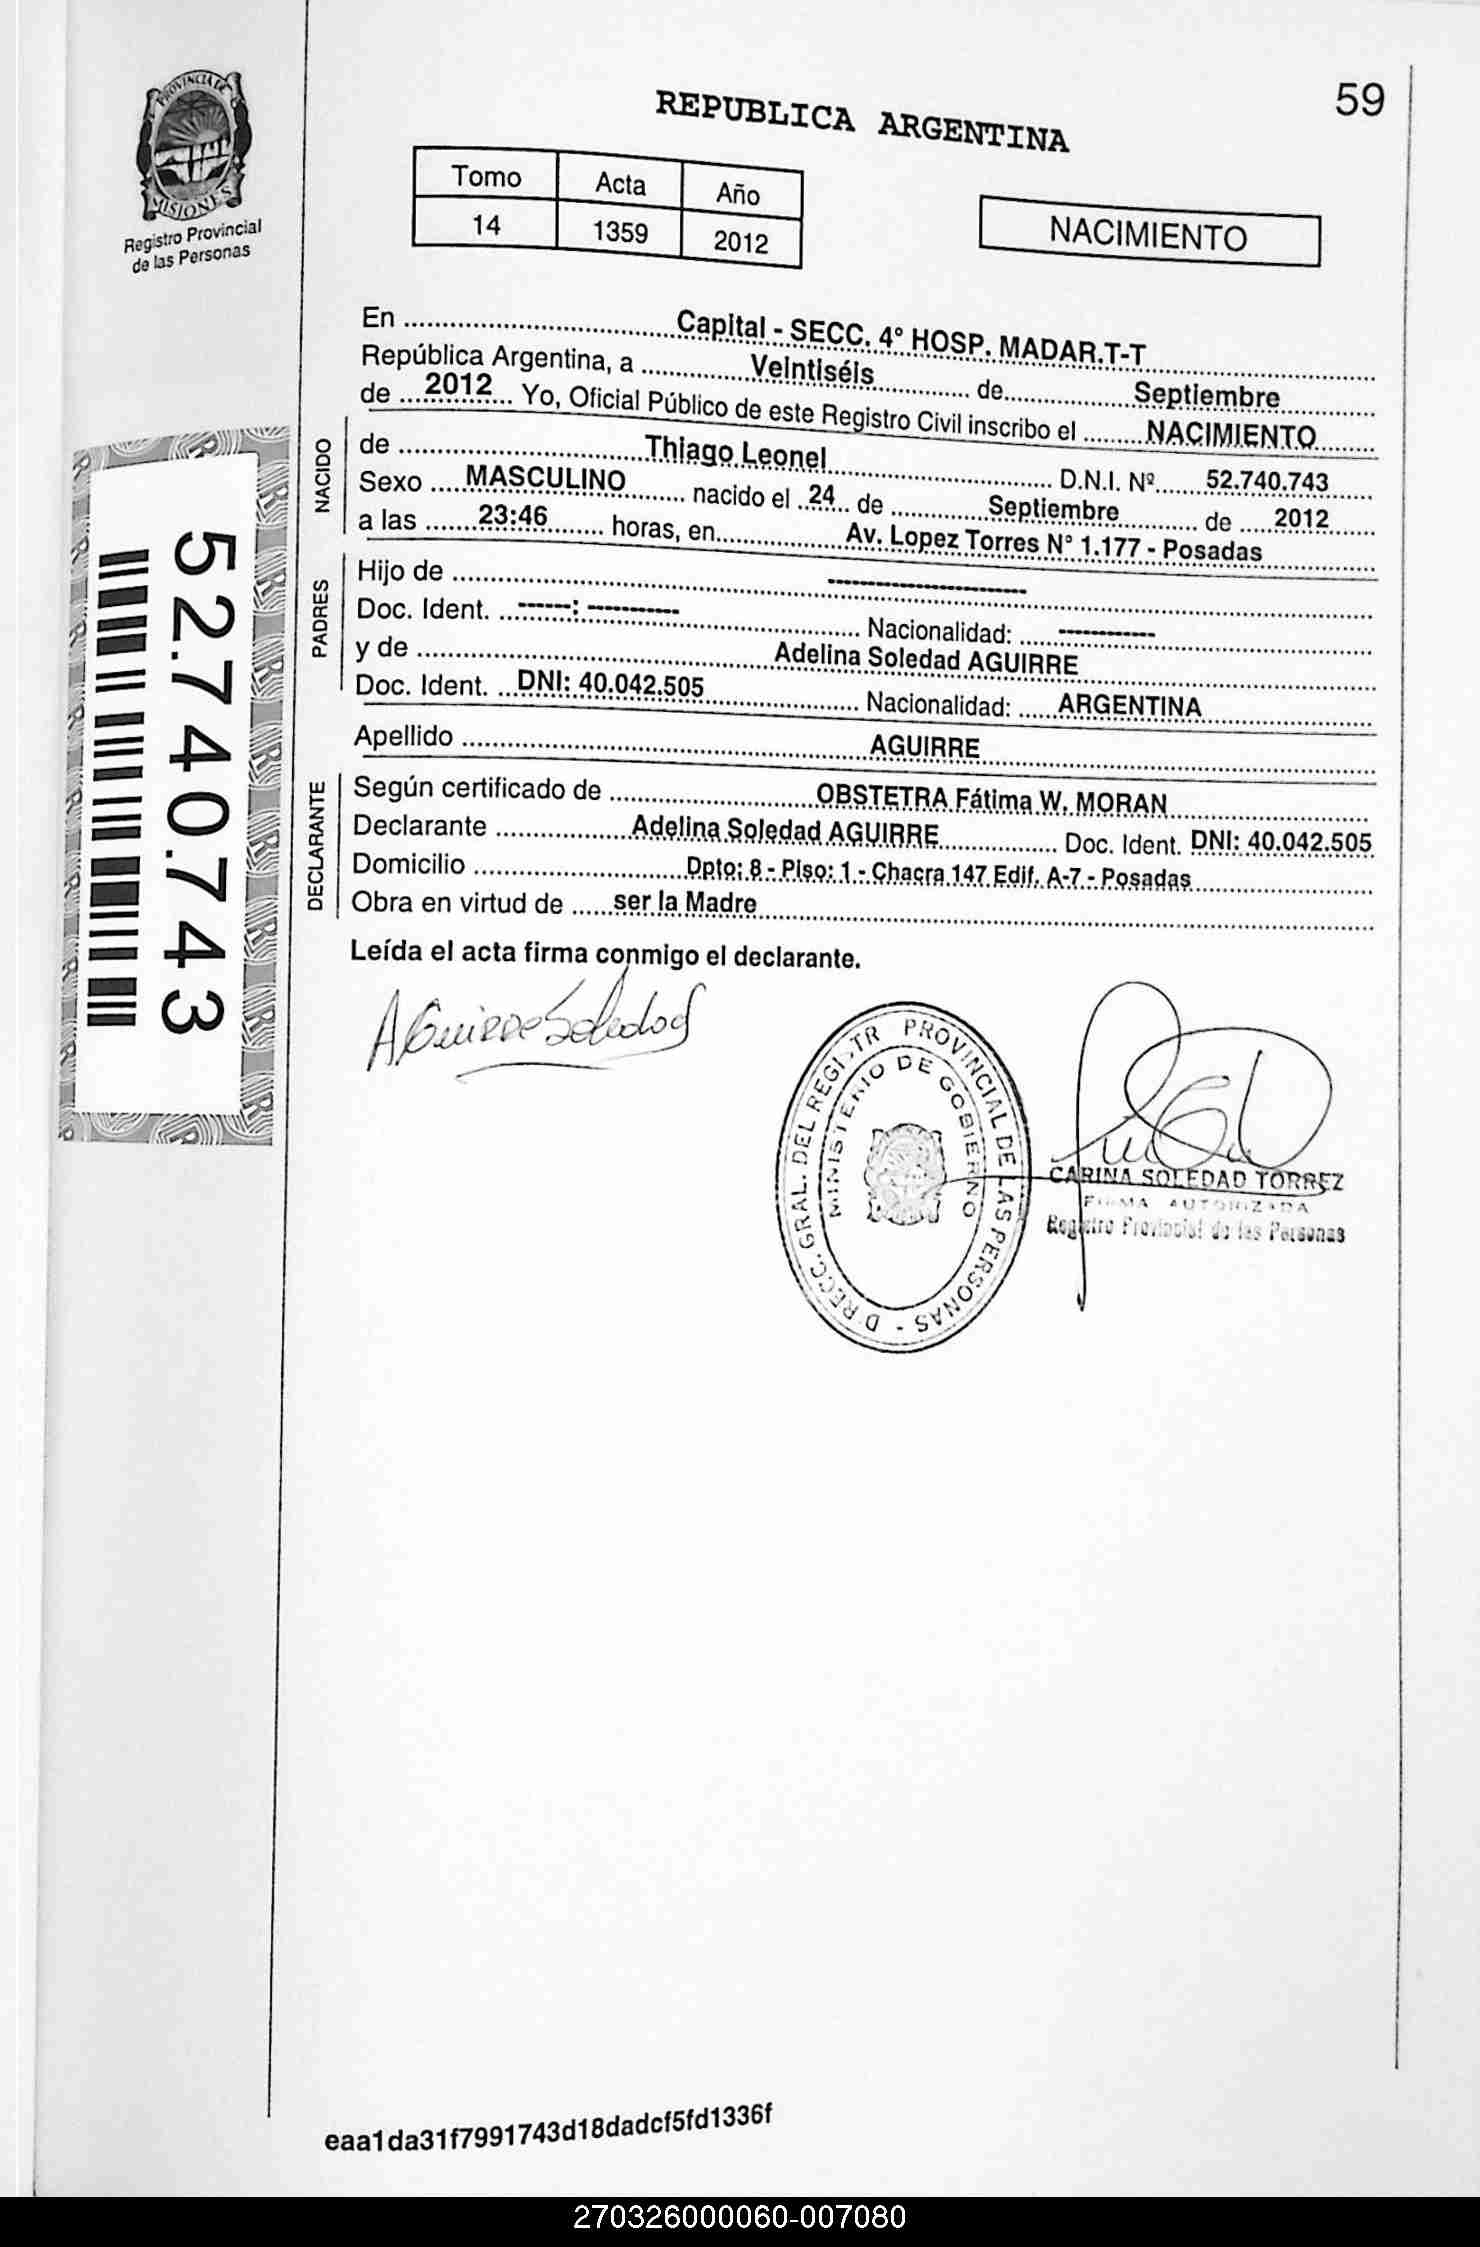 PROVINCIA DE
MISIONES
Registro Provincial
de las Personas
59
REPUBLICA ARGENTINA
Tomo Acta Año
14 1359 2012
NACIMIENTO
En Capital - SECC. 4° HOSP. MADAR.T-T
República Argentina, a Veintiséis de Septiembre
de 2012 Yo, Oficial Público de este Registro Civil inscribo el NACIMIENTO
NACIDO
de Thiago Leonel D.N.I. Nº 52.740.743
Sexo MASCULINO nacido el 24 de Septiembre de 2012
a las 23:46 horas, en Av. Lopez Torres N° 1.177 - Posadas
PADRES
Hijo de --------------------
Doc. Ident. ------: ---------- Nacionalidad: ------------
y de Adelina Soledad AGUIRRE
Doc. Ident. DNI: 40.042.505 Nacionalidad: ARGENTINA
Apellido AGUIRRE
DECLARANTE
Según certificado de OBSTETRA Fátima W. MORAN
Declarante Adelina Soledad AGUIRRE Doc. Ident. DNI: 40.042.505
Domicilio Dpto: 8 - Piso: 1 - Chacra 147 Edif. A-7 - Posadas
Obra en virtud de ser la Madre
Leída el acta firma conmigo el declarante.
52.740.743
AGuirre Soledad
D RECC. GRAL. DEL REGISTR PROVINCIAL DE LAS PERSONAS -
MINISTERIO DE GOBIERNO
CARINA SOLEDAD TORREZ
FIRMA AUTORIZADA
Registro Provincial de las Personas
eaa1da31f7991743d18dadcf5fd1336f
270326000060-007080